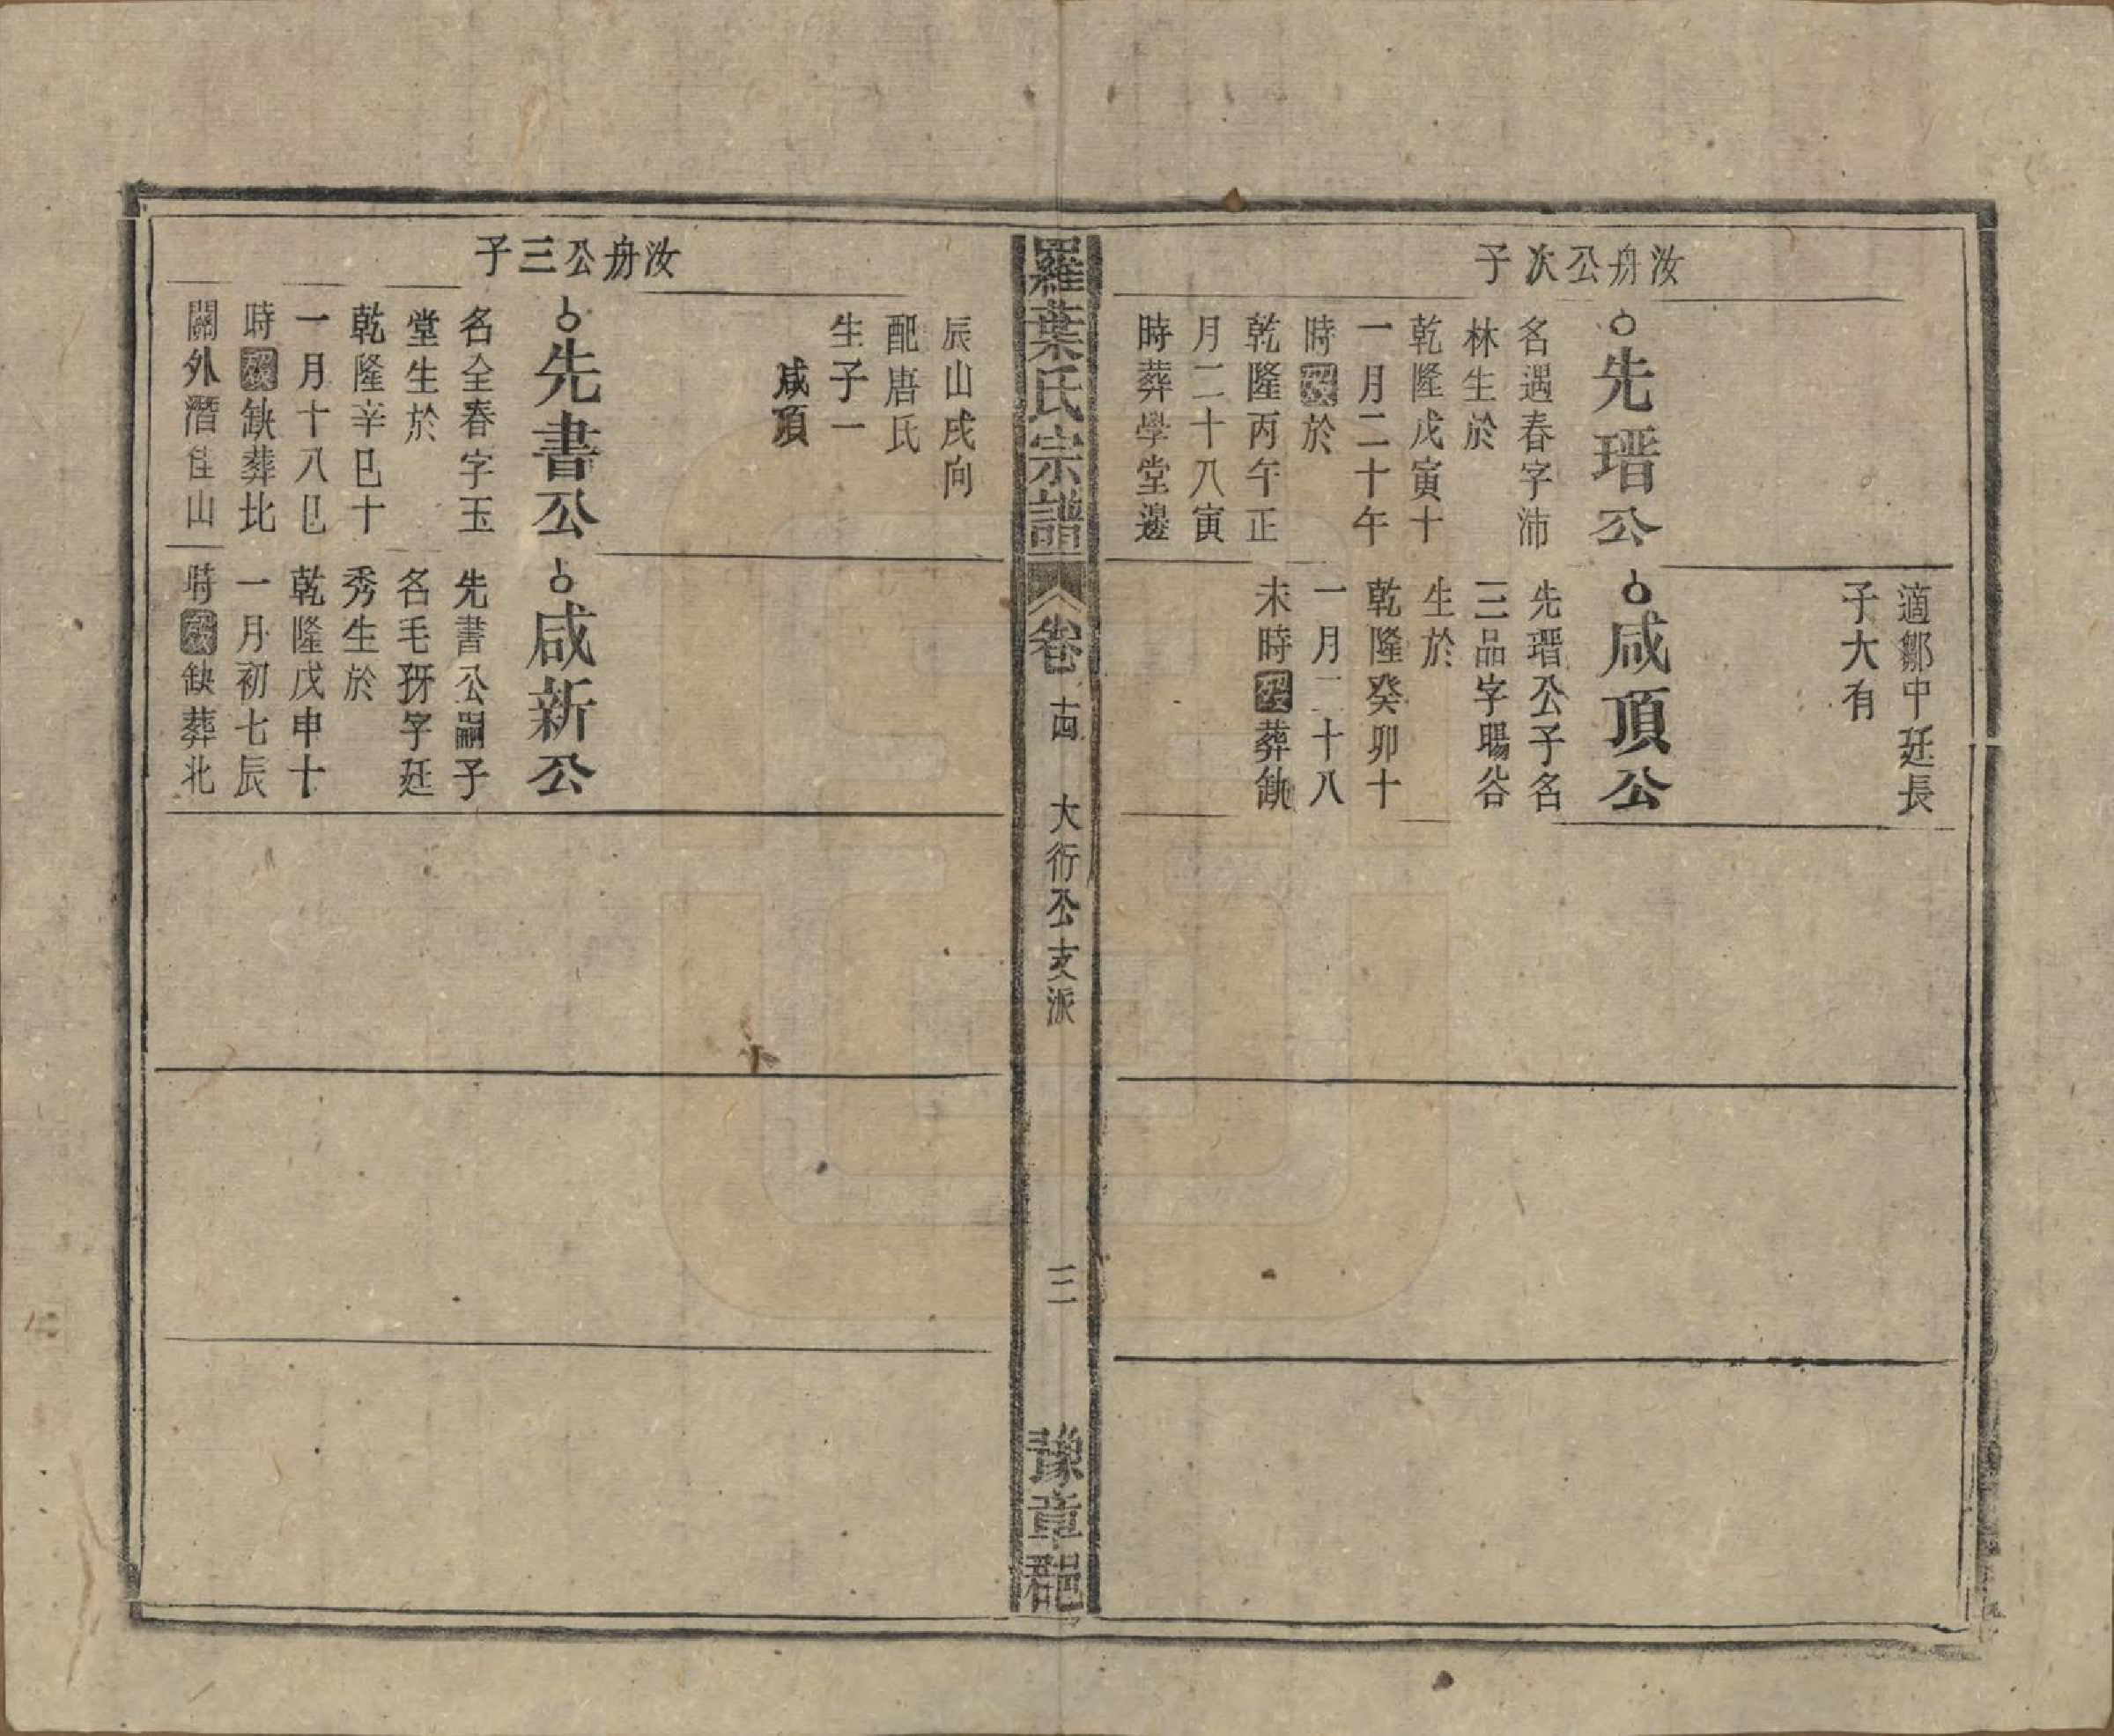 適鄒中廷長
子大有
汝舟公次子
先瑨公
名遇春字沛
林生於
乾隆戊寅十
一月二十午
時歿於
乾隆丙午正
月二十八寅
時葬學堂邊
咸頂公
先瑨公子名
三品字暘谷
生於
乾隆癸卯十
一月二十八
未時歿葬缺
羅葉氏宗譜
卷 十四
大衍公支派
三
豫章郡
辰山戌向
配唐氏
生子一
咸頂
汝舟公三子
先書公
名全春字玉
堂生於
乾隆辛巳十
一月十八巳
時歿缺葬北
關外潛佳山
咸新公
先書公嗣子
名毛犽字廷
秀生於
乾隆戊申十
一月初七辰
時歿缺葬北